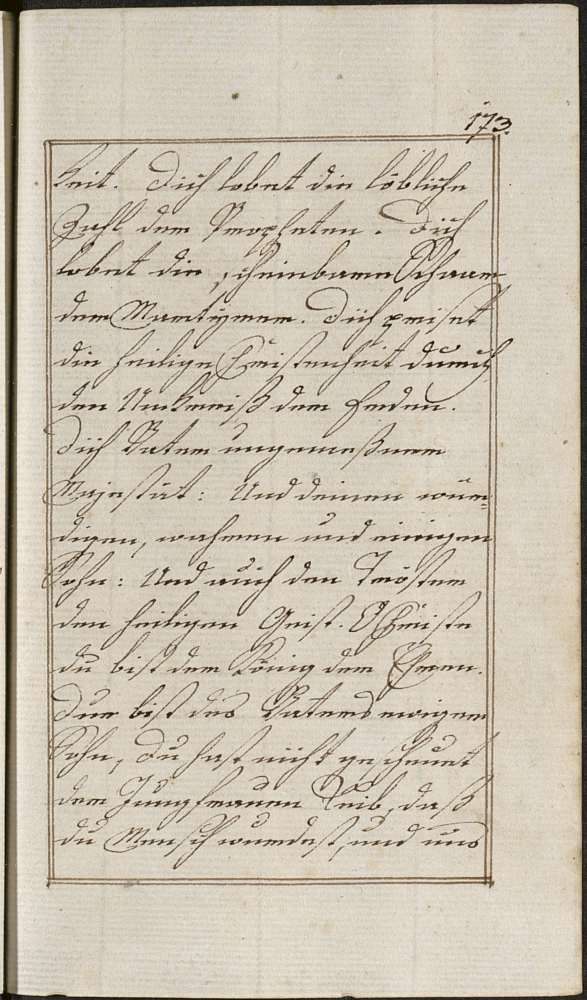 173.
keit. Dich lobet die löbliche
Zahl der Propheten. Dich
lobet die scheinbare Schaar
der Martyrer. Dich preiset
die heilige Christenheit durch
den Umkreiß der Erden.
Dich Vater ungemeßner
Majestät: Und deinen wür-
digen, wahren und einigen
Sohn: Und auch den Tröster
den heiligen Geist. O Christe
du bist der König der Ehren.
Du bist des Vaters ewiger
Sohn, Du hast nicht gescheuet
der Jungfrauen Leib, daß
du Mensch wurdest, und uns